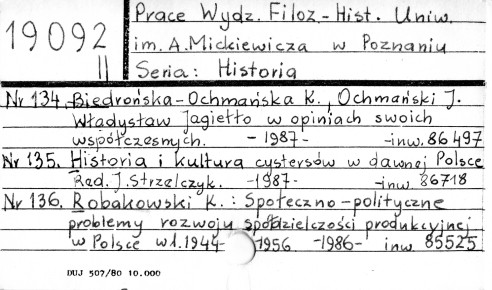 19092
II
Prace Wydz. Filoz.-Hist. Uniw.
im. A. Mickiewicza w Poznaniu
Seria: Historia
Nr 134. Biedrońska-Ochmańska K., Ochmański J.
Władysław Jagiełło w opiniach swoich
współczesnych. -1987- -inw. 86497
Nr 135. Historia i kultura cystersów w dawnej Polsce
Red. J. Strzelczyk. -1987- -inw. 86718
Nr 136. Robakowski K.: Społeczno-polityczne
problemy rozwoju spółdzielczości produkcyjnej
w Polsce w l. 1944-1956 -1986- inw. 85525
DUJ 507/80 10.000